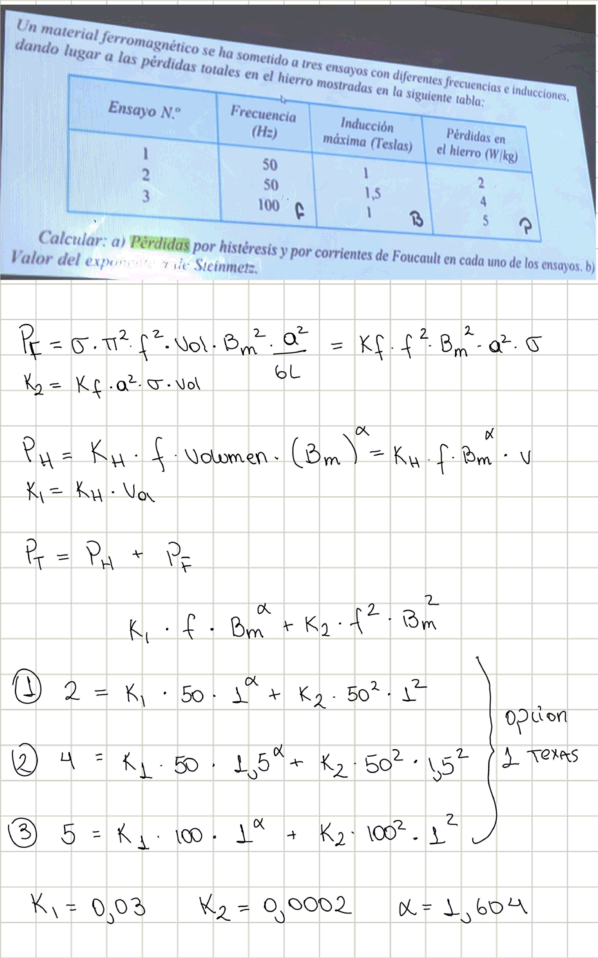 Un material ferromagnético se ha sometido a tres ensayos con diferentes frecuencias e inducciones,
dando lugar a las pérdidas totales en el hierro mostradas en la siguiente tabla:
Ensayo N.º Frecuencia (Hz) Inducción máxima (Teslas) Pérdidas en el hierro (W/kg)
1 50 1 2
2 50 1,5 4
3 100 f 1 B 5 P
Calcular: a) Pérdidas por histéresis y por corrientes de Foucault en cada uno de los ensayos. b)
Valor del de Steinmetz.
P_F = σ · π² · f² · Vol · B_m² · a²/6L = Kf · f² · B_m² · a² · σ
K₂ = Kf · a² · σ · vol
P_H = K_H · f · Volumen · (B_m)^α = K_H · f · B_m^α · v
K₁ = K_H · Vol
P_T = P_H + P_F
K₁ · f · B_m^α + K₂ · f² · B_m²
① 2 = K₁ · 50 · 1^α + K₂ · 50² · 1²
② 4 = K₁ · 50 · 1,5^α + K₂ · 50² · 1,5²
opcion
1 TEXAS
③ 5 = K₁ · 100 · 1^α + K₂ · 100² · 1²
K₁ = 0,03 K₂ = 0,0002 α = 1,604